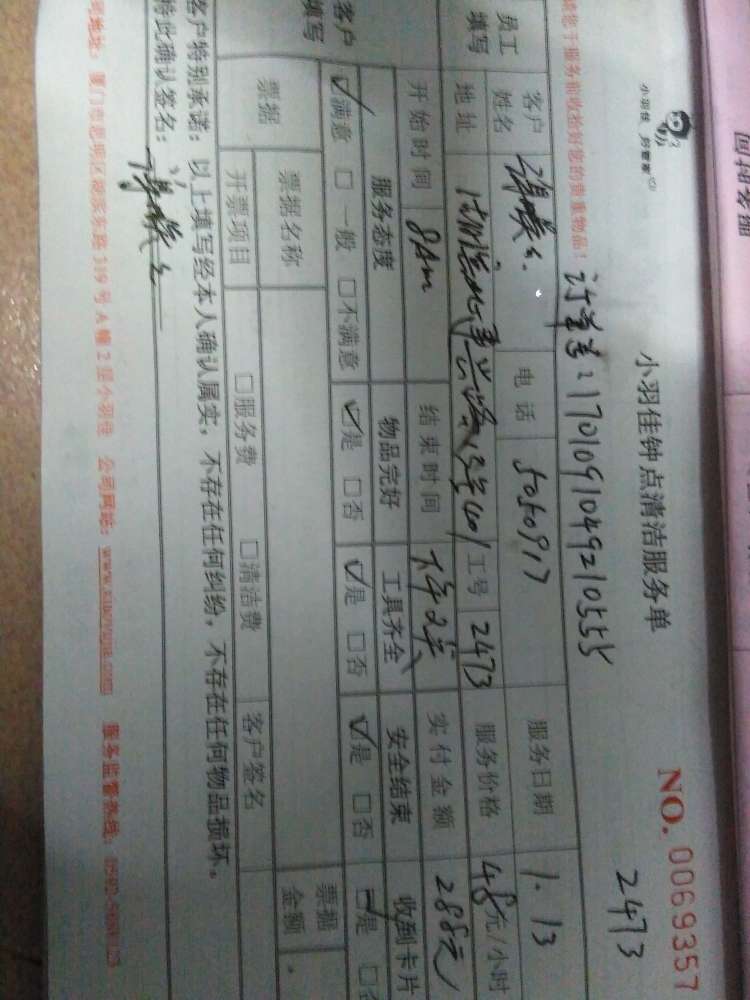 回抽客服
小羽佳 好管家
小羽佳钟点清洁服务单
NO. 0069357
2473
订单号：17010910492105555
服务前收检好您的贵重物品！
员工填写 客户姓名 电话 5050917 服务日期 1.13
地址 工号 2473 服务价格 48元/小时
开始时间 8Am 结束时间 实付金额 288元
客户填写 服务态度 物品完好 工具齐全 安全结束 收到卡片
☑满意 □一般 □不满意 ☑是 □否 ☑是 □否 ☑是 □否 ☑是 □否
票据 票据名称 票据金额
开票项目 □服务费 □清洁费 客户签名
客户特别承诺：以上填写经本人确认属实，不存在任何纠纷，不存在任何物品损坏。
特此确认签名：
司地址：厦门市思明区湖滨东路319号A幢2层小羽佳 公司网站：www.xiaoyujia.com 服务监督热线：